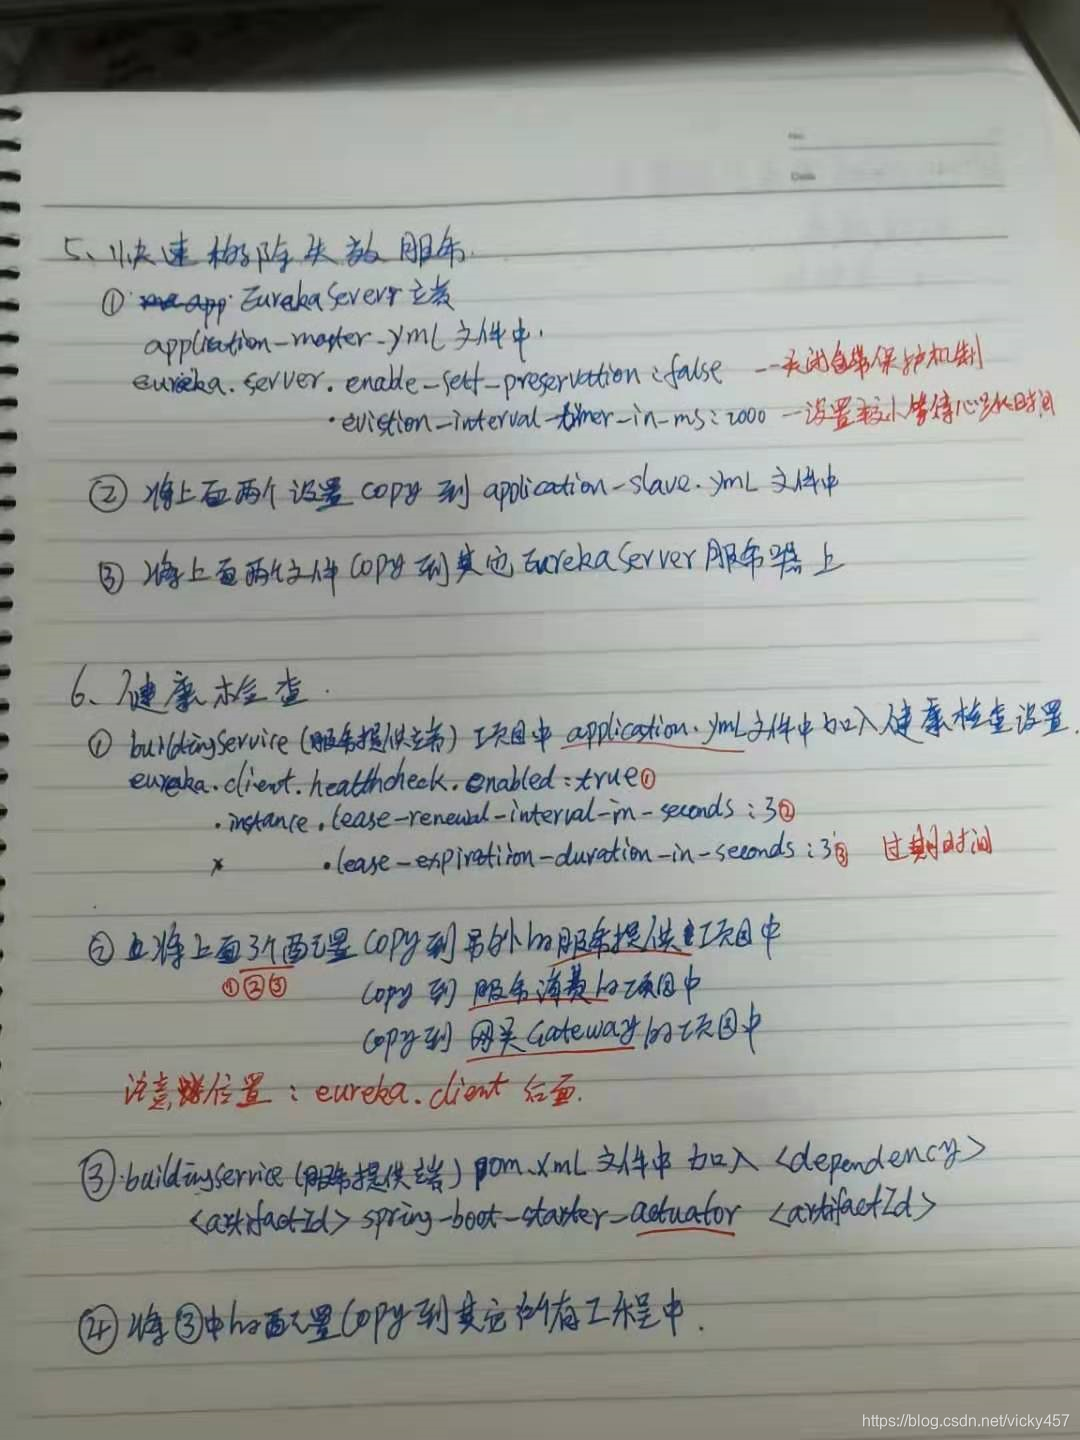 No.
Date
5、快速移除失效服务.
① EurekaSever 主类
application-master.yml 文件中.
eureka.server.enable-self-preservation:false --关闭自带保护机制
·eviction-interval-timer-in-ms:2000 --设置较小等待心跳时间
② 将上面两个设置 copy 到 application-slave.yml 文件中
③ 将上面两个文件 copy 到其它 EurekaServer 服务器上
6、健康检查.
① buildingService (服务提供端) 项目中 application.yml 文件中加入健康检查设置.
eureka.client.healthcheck.enabled:true①
·instance.lease-renewal-interval-in-seconds:3②
·lease-expiration-duration-in-seconds:3③ 过期时间
② 将上面3个配置 copy 到另外的服务提供 项目中
①②③ copy 到 服务消费的项目中
copy 到 网关Gateway的项目中
注意 位置:eureka.client 后面.
③.buildingService (服务提供端) pom.xml 文件中加入 <dependency>
<artifactId> spring-boot-starter-actuator <artifactId>
④ 将③中的配置 copy 到其它所有工程中.
https://blog.csdn.net/vicky457